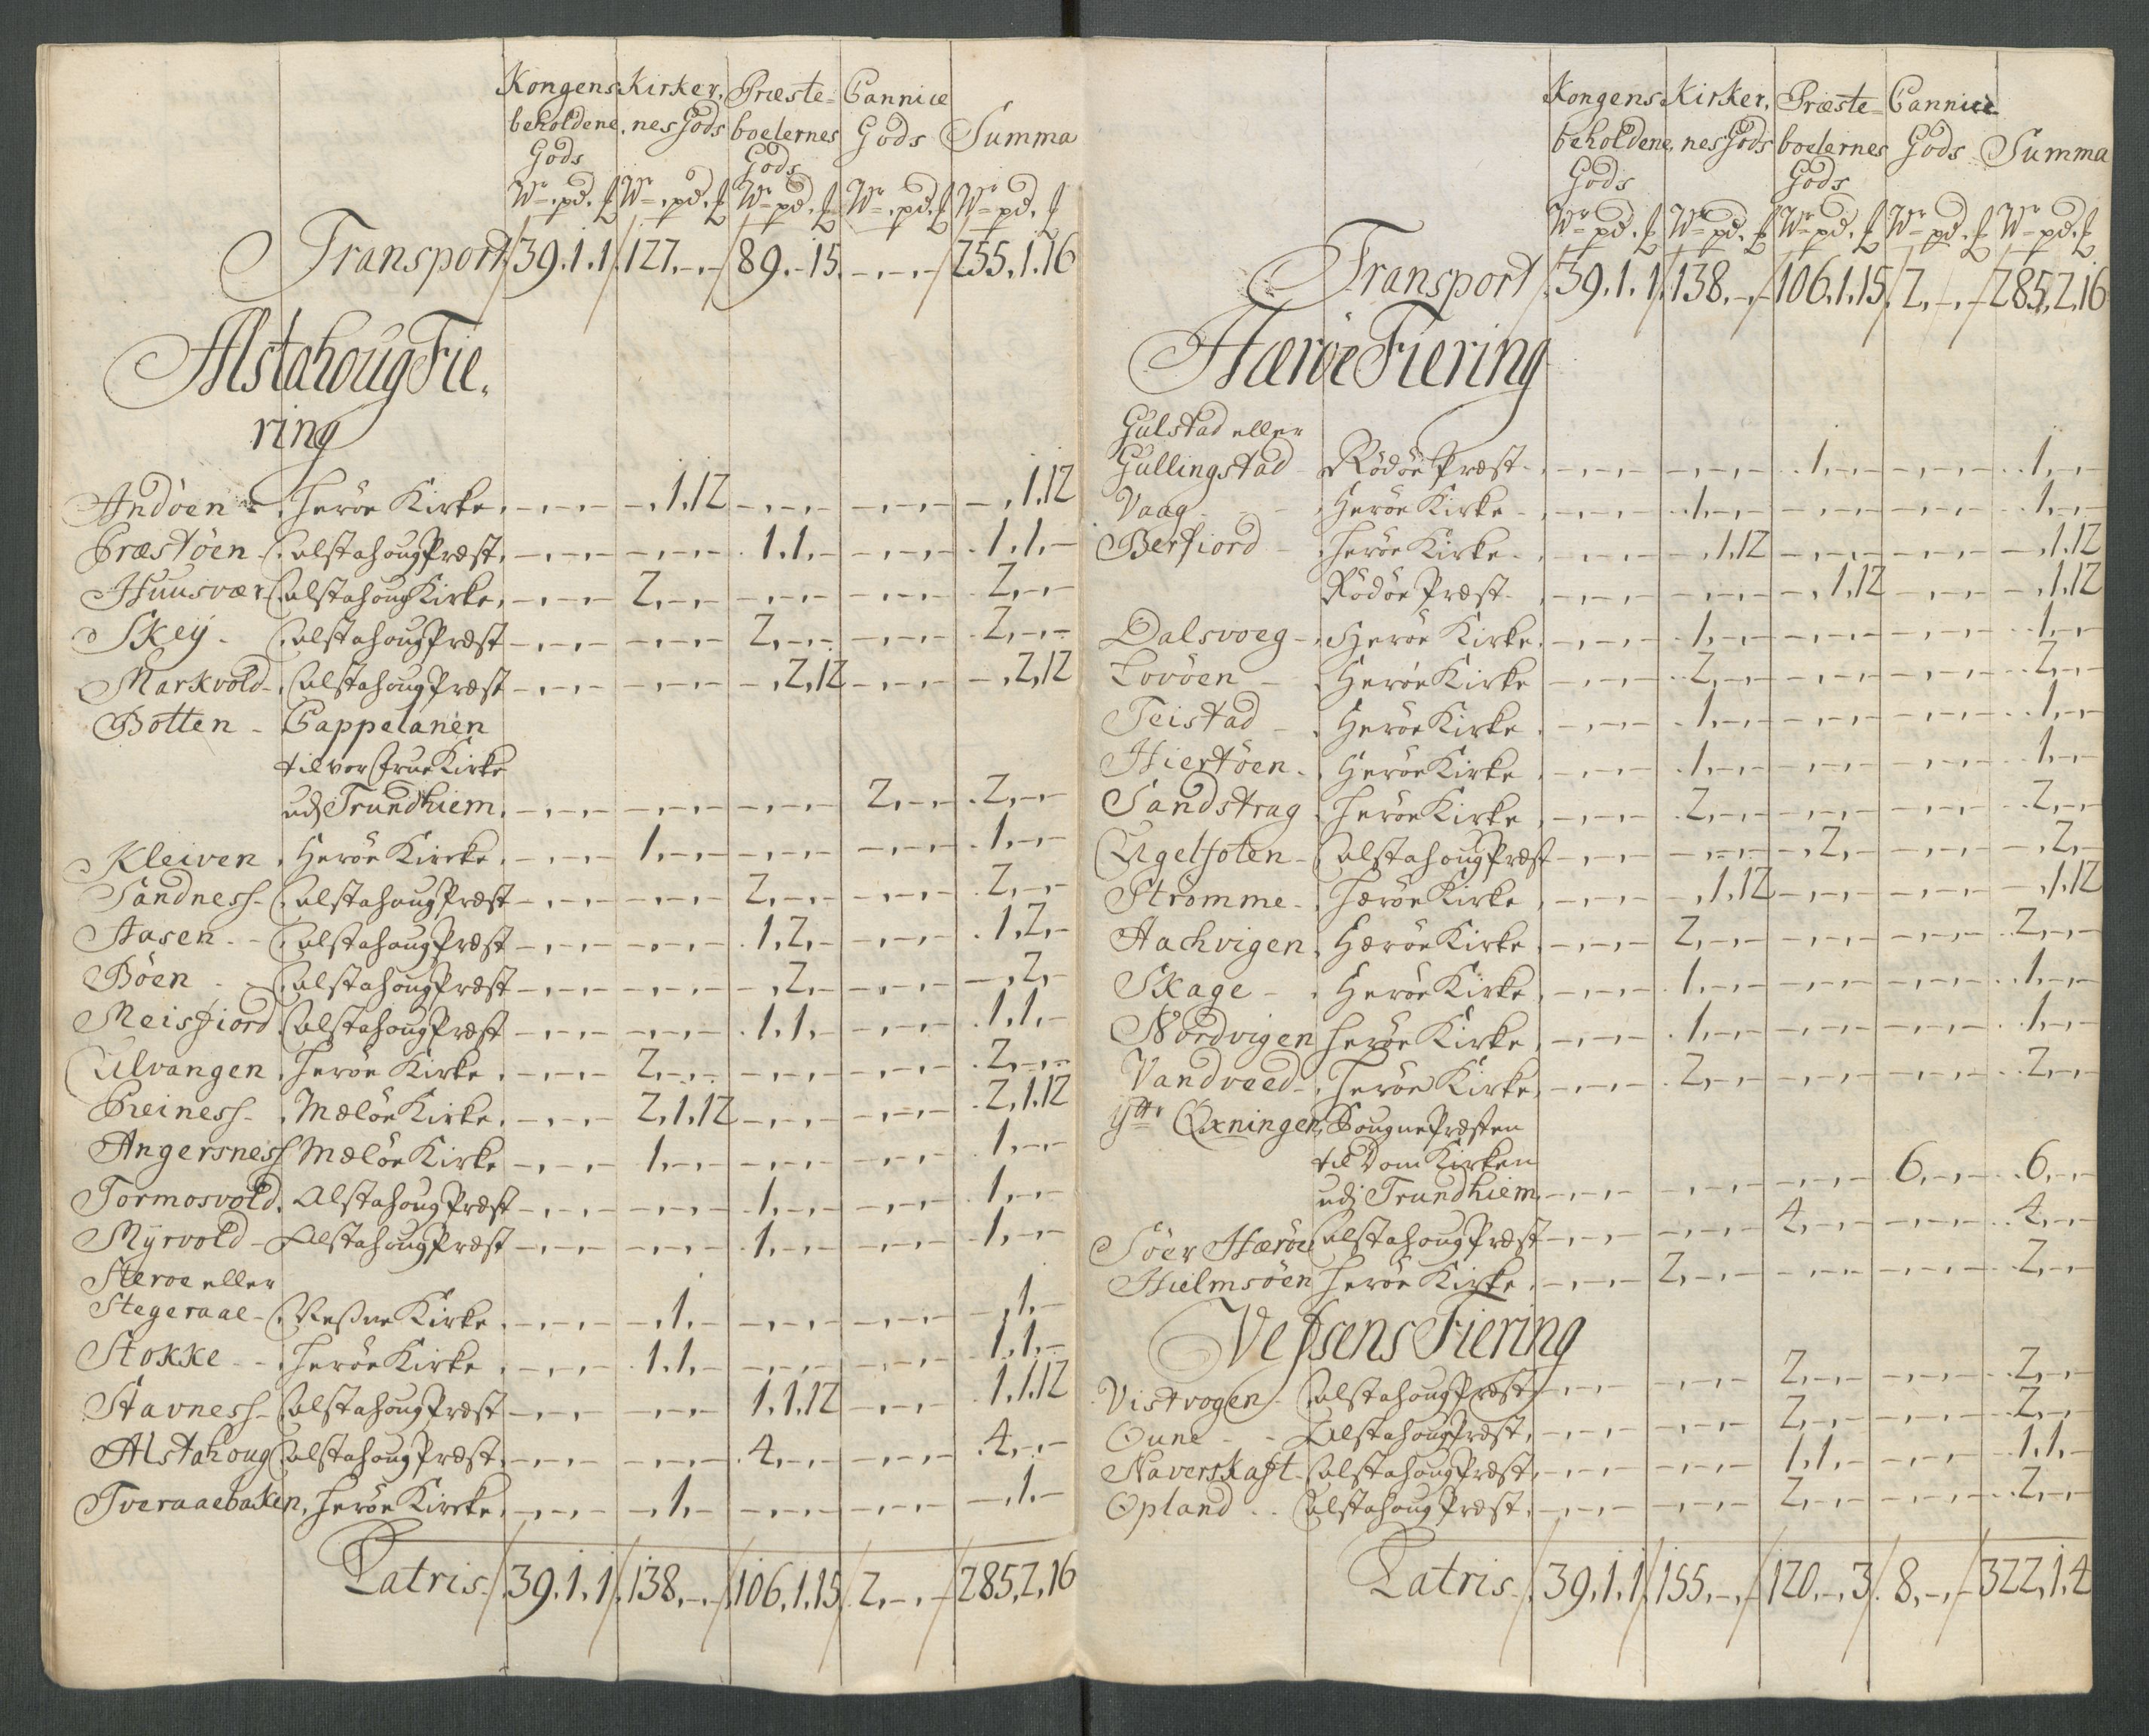 Kongens Kirker, Præste= Cannice
beholdene, nes Gods boelernes Gods Summa
Gods Gods
W. pd. W. pd. W. pd. W. pd. W. pd.
Transport 39.1.1 127.-.- 89.-.15 -.-.- 255.1.16
Alstahoug Fie,
ring
Andöen Heröe Kirke -.-.- -.1.12 -.-.- -.-.- -.1.12
Præstöen Alstahoug Præst -.-.- -.-.- 1.1.- -.-.- 1.1.-
Huusvær Alstahoug Kirke -.-.- 2.-.- -.-.- -.-.- 2.-.-
Skeij Alstahoug Præst -.-.- -.-.- 2.-.- -.-.- 2.-.-
Markvold Alstahoug Præst -.-.- -.-.- -.2.12 -.-.- -.2.12
Botten Cappelanen
til vor Frue Kirke
udj Trundhiem -.-.- -.-.- -.-.- 2.-.- 2.-.-
Kleiven Heröe Kircke -.-.- 1.-.- -.-.- -.-.- 1.-.-
Sandness Alstahoug Præst -.-.- -.-.- 2.-.- -.-.- 2.-.-
Aasen Alstahoug Præst -.-.- -.-.- 1.2.- -.-.- 1.2.-
Böen Alstahoug Præst -.-.- -.-.- -.2.- -.-.- -.2.-
Meisfiord Alstahoug Præst -.-.- -.-.- 1.1.- -.-.- 1.1.-
Ulvangen Heröe Kirke -.-.- 2.-.- -.-.- -.-.- 2.-.-
Breiness Mælöe Kirke -.-.- 2.1.12 -.-.- -.-.- 2.1.12
Angersness Mælöe Kirke -.-.- 1.-.- -.-.- -.-.- 1.-.-
Tormosvold Alstahoug Præst -.-.- -.-.- 1.-.- -.-.- 1.-.-
Myrvold Alstahoug Præst -.-.- -.-.- 1.-.- -.-.- 1.-.-
Steroe eller
Stegeraae Vessne Kirke -.-.- -.1.- -.-.- -.-.- -.1.-
Stokke Heröe Kirke -.-.- 1.1.- -.-.- -.-.- 1.1.-
Stavness Alstahoug Præst -.-.- -.-.- 1.1.12 -.-.- 1.1.12
Alstahoug Alstahoug Præst -.-.- -.-.- 4.-.- -.-.- 4.-.-
Tveraaebaken, Heröe Kircke -.-.- -.1.- -.-.- -.-.- -.1.-
Latris 39.1.1 138.-.- 106.1.15 2.-.- 285.2.16
Kongens Kirker, Præste= Cannice
beholdene, nes Gods boelernes Gods Summa
Gods Gods
W. pd. W. pd. W. pd. W. pd. W. pd.
Transport 39.1.1 138.-.- 106.1.15 2.-.- 285.2.16
Hæröe Fiering
Gulstad eller
Gullingstad Rödöe Præst -.-.- -.-.- 1.-.- -.-.- 1.-.-
Vaag Heröe Kirke -.-.- 1.-.- -.-.- -.-.- 1.-.-
Berfiord Heröe Kirke -.-.- -.1.12 -.-.- -.-.- -.1.12
Rödöe Præst -.-.- -.-.- -.1.12 -.-.- -.1.12
Dalsvoeg Heröe Kirke -.-.- 1.-.- -.-.- -.-.- 1.-.-
Lovöen Heröe Kirke -.-.- 2.-.- -.-.- -.-.- 2.-.-
Teistad Heröe Kirke -.-.- 1.-.- -.-.- -.-.- 1.-.-
Hiertöen Heröe Kirke -.-.- 1.-.- -.-.- -.-.- 1.-.-
Sandstrag Heröe Kirke -.-.- 2.-.- -.-.- -.-.- 2.-.-
Ugelsolen Alstahoug Præst -.-.- -.-.- -.2.- -.-.- -.2.-
Strömme Hæröe Kirke -.-.- -.1.12 -.-.- -.-.- -.1.12
Hachvigen Hæröe Kirke -.-.- 2.-.- -.-.- -.-.- 2.-.-
Skage Heröe Kirke -.-.- 1.-.- -.-.- -.-.- 1.-.-
Nordvigen Heröe Kirke -.-.- 1.-.- -.-.- -.-.- 1.-.-
Vandveed Heröe Kirke -.-.- 2.-.- -.-.- -.-.- 2.-.-
Ytr Öxningen Sougne Præsten
til Dom Kirken
udi Trundhiem -.-.- -.-.- -.-.- 6.-.- 6.-.-
Söer Hæröe Alstahoug Præst -.-.- -.-.- 4.-.- -.-.- 4.-.-
Hielmsöen Heröe Kirke -.-.- 2.-.- -.-.- -.-.- 2.-.-
Vefsens Fiering
Vistvogen Alstahoug Præst -.-.- -.-.- 2.-.- -.-.- 2.-.-
Oune Alstahoug Præst -.-.- -.-.- 2.-.- -.-.- 2.-.-
Naverskaft Alstahoug Præst -.-.- -.-.- 1.1.- -.-.- 1.1.-
Opland Alstahoug Præst -.-.- -.-.- 2.-.- -.-.- 2.-.-
Latris 39.1.1 155.-.- 120.-.3 8.-.- 322.1.4